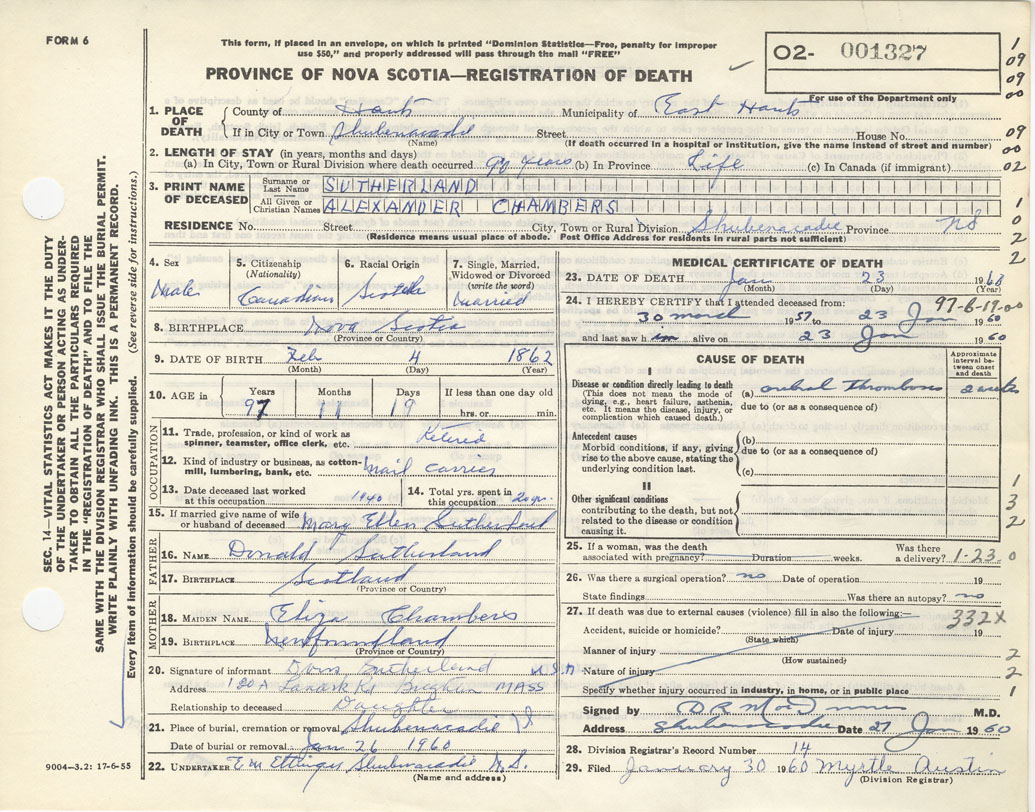 FORM 6
This form, if placed in an envelope, on which is printed "Dominion Statistics—Free, penalty for improper
use $50," and properly addressed will pass through the mail "FREE"
PROVINCE OF NOVA SCOTIA—REGISTRATION OF DEATH
O2- 001327
For use of the Department only
1
09
09
00
1. PLACE OF DEATH
County of Hants Municipality of East Hants
If in City or Town Shubenacadie Street House No.
(Name) (If death occurred in a hospital or institution, give the name instead of street and number)
09
00
2. LENGTH OF STAY (in years, months and days)
(a) In City, Town or Rural Division where death occurred 97 years (b) In Province Life (c) In Canada (if immigrant)
02
3. PRINT NAME OF DECEASED
Surname or Last Name SUTHERLAND
All Given or Christian Names ALEXANDER CHAMBERS
1
0
2
2
RESIDENCE No. Street City, Town or Rural Division Shubenacadie Province NS
(Residence means usual place of abode. Post Office Address for residents in rural parts not sufficient)
4. Sex
Male
5. Citizenship (Nationality)
Canadian
6. Racial Origin
Scotch
7. Single, Married, Widowed or Divorced (write the word)
Married
8. BIRTHPLACE Nova Scotia
(Province or Country)
9. DATE OF BIRTH Feb 4 1862
(Month) (Day) (Year)
10. AGE in Years Months Days If less than one day
97 11 19 hrs. or min.
OCCUPATION
11. Trade, profession, or kind of work as
spinner, teamster, office clerk, etc. Retired
12. Kind of industry or business, as cotton-
mill, lumbering, bank, etc. Mail carrier
13. Date deceased last worked
at this occupation 1940
14. Total yrs. spent in
this occupation 20 yrs.
15. If married give name of wife
or husband of deceased Mary Ellen Sutherland
FATHER
16. NAME Donald Sutherland
17. BIRTHPLACE Scotland
(Province or Country)
MOTHER
18. MAIDEN NAME Eliza Chambers
19. BIRTHPLACE Newfoundland
(Province or Country)
20. Signature of informant Sutherland U.S.A
Address 120A Lanark Rd Brighton MASS
Relationship to deceased Daughter
21. Place of burial, cremation or removal Shubenacadie
Date of burial or removal Jan 26 1960
22. UNDERTAKER E m Ettinger Shubenacadie N.S.
(Name and address)
MEDICAL CERTIFICATE OF DEATH
23. DATE OF DEATH Jan 23 1960
(Month) (Day) (Year)
97-6-19-00
24. I HEREBY CERTIFY that I attended deceased from:
30 march 1957 to 23 Jan 1960
and last saw him alive on 23 Jan 1960
CAUSE OF DEATH
Approximate interval between onset and death
I
Disease or condition directly leading to death (a) thrombosis 2 weeks
(This does not mean the mode of dying, e.g., heart failure, asthenia, etc. It means the disease, injury, or complication which caused death.)
due to (or as a consequence of)
Antecedent causes
Morbid conditions, if any, giving rise to the above cause, stating the underlying condition last.
(b)
due to (or as a consequence of)
(c)
II
Other significant conditions
contributing to the death, but not related to the disease or condition causing it.
1
3
2
25. If a woman, was the death associated with pregnancy? Duration weeks. Was there a delivery? 1-23.0
26. Was there a surgical operation? no Date of operation 19
State findings Was there an autopsy? no
27. If death was due to external causes (violence) fill in also the following:—
332X
Accident, suicide or homicide? Date of injury 19
(State which)
Manner of injury 2
(How sustained)
Nature of injury 2
Specify whether injury occurred in industry, in home, or in public place 1
Signed by M.D.
Address Shubenacadie Date 27 Jan 1960
28. Division Registrar's Record Number 14
29. Filed January 30 1960 Myrtle Austin
(Division Registrar)
SEC. 14—VITAL STATISTICS ACT MAKES IT THE DUTY
OF THE UNDERTAKER OR PERSON ACTING AS UNDER-
TAKER TO OBTAIN ALL THE PARTICULARS REQUIRED
IN THE "REGISTRATION OF DEATH" AND TO FILE THE
SAME WITH THE DIVISION REGISTRAR WHO SHALL ISSUE THE BURIAL PERMIT.
WRITE PLAINLY WITH UNFADING INK. THIS IS A PERMANENT RECORD.
Every item of information should be carefully supplied. (See reverse side for instructions.)
9004-3.2: 17-6-55